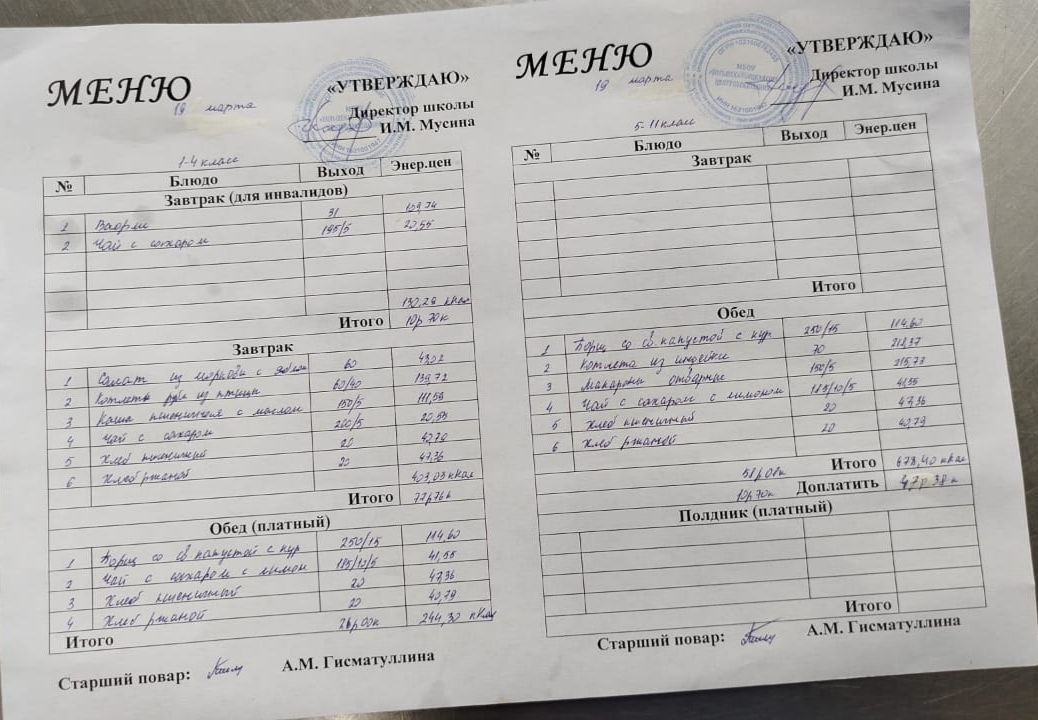 МЕНЮ
19 марта
«УТВЕРЖДАЮ»
Директор школы
И.М. Мусина
1-4 класс
№ Блюдо Выход Энер.цен
Завтрак (для инвалидов)
1 Вафли 31 109,74
2 Чай с сахаром 195/5 20,55
130,29 кКал
Итого 10р 70к
Завтрак
1 Салат из моркови с яблок 60 43,02
2 Котлета из птицы 60/40 139,72
3 Каша пшеничная с маслом 150/5 111,59
4 Чай с сахаром 200/5 20,55
5 Хлеб пшеничный 20 40,79
6 Хлеб ржаной 20 47,36
403,03 кКал
Итого 77р76к
Обед (платный)
1 Борщ со св капустой с кур 250/15 114,60
2 Чай с сахаром с лимон 185/10/5 41,55
3 Хлеб пшеничный 20 47,36
4 Хлеб ржаной 20 40,79
Итого 26р00к 244,30 кКал
Старший повар: А.М. Гисматуллина
МЕНЮ
19 марта
«УТВЕРЖДАЮ»
Директор школы
И.М. Мусина
5-11 класс
№ Блюдо Выход Энер.цен
Завтрак
Итого
Обед
1 Борщ со св капустой с кур 250/15 114,60
2 Котлета из индейки 70 218,37
3 Макароны отварные 150/5 215,73
4 Чай с сахаром с лимоном 185/10/5 41,55
5 Хлеб пшеничный 20 47,36
6 Хлеб ржаной 20 40,79
58р08к Итого 678,40 кКал
10р70к Доплатить 47р38к
Полдник (платный)
Итого
Старший повар: А.М. Гисматуллина